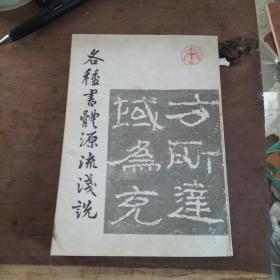 各種書體源流淺説
方所達
域為充